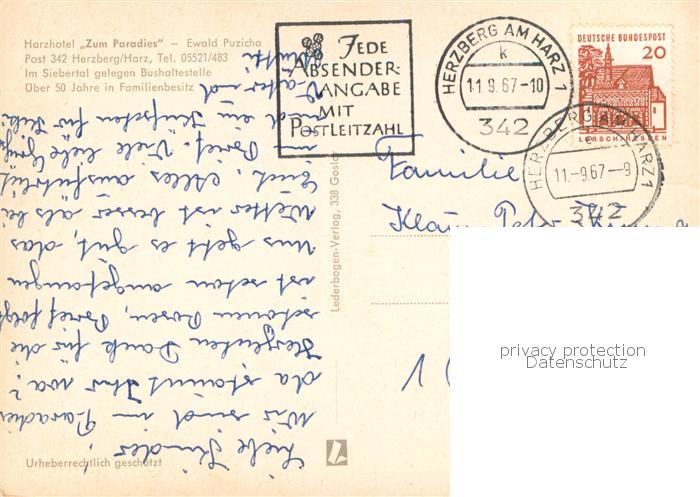 Harzhotel „Zum Paradies" – Ewald Puzicha
Post 342 Herzberg/Harz, Tel. 05521/483
Im Siebertal gelegen Bushaltestelle
Über 50 Jahre in Familienbesitz
JEDE
ABSENDER-
ANGABE
MIT
POSTLEITZAHL
HERZBERG AM HARZ 1
k
11.9.67-10
342
DEUTSCHE BUNDESPOST
20
LORSCH/HESSEN
HERZBERG AM HARZ 1
11.-9.67-9
342
Familie
Klaus Peter
1
Lederbogen-Verlag, 338 Goslar
Liebe Kinder!
Wir sind im Paradies
da staunt Ihr wa?
Herzlichen Dank für die
schönen Rosen, Brief folgt
ist schon angefangen
Uns geht es gut, das
Wetter ist besser als bei
Euch. Alles ausführlich
im Brief. Viele liebe Grüße
und ein Küsschen für
Vater und
Mutti
Urheberrechtlich geschützt
privacy protection
Datenschutz